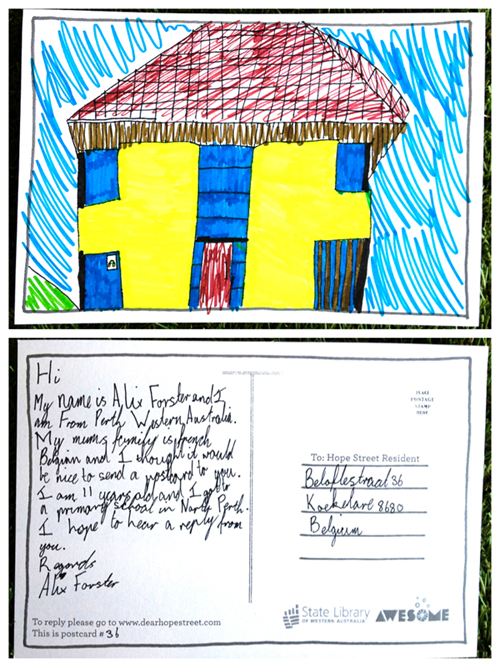 Hi
My name is Alix Forster and I
am From Perth Western Australia.
My mums family is french
Belgian and I thought it would
be nice to send a postcard to you.
I am 11 years old and I go to
a primary school in North Perth.
I hope to hear a reply from
you.
Regards
Alix Forster
To reply please go to www.dearhopestreet.com
This is postcard #36
PLACE
POSTAGE
STAMP
HERE
To: Hope Street Resident
Koekelare 8680
Belgium
State Library
OF WESTERN AUSTRALIA
AWESOME